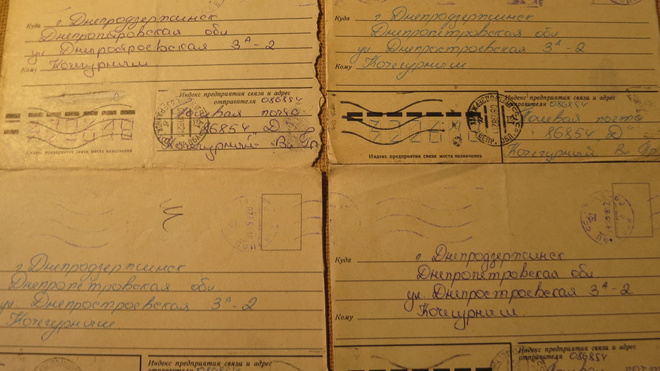 Куда г. Днепродзержинск
Днепропетровская обл
ул Днепростроевская 3А-2
Кому Кочегурныш
Индекс предприятия связи и адрес
отправителя 086854
Полевая почта
86854 Д
Индекс предприятия связи места назначения
Куда г. Днепродзержинск
Днепропетровская обл
ул Днепростроевская 3А-2
Кому Кочегурныш
Индекс предприятия связи и адрес
отправителя 086854
Полевая почта
86854 Д
Индекс предприятия связи места назначения
Кочегурный
г Днепродзержинск
Днепропетровская обл
ул. Днепростроевская 3А-2
Кочегурныш
Индекс предприятия связи и адрес
отправителя 086854
Куда г. Днепродзержинск
Днепропетровская обл
ул. Днепростроевская 3А-2
Кому Кочегурныш
Индекс предприятия связи и адрес
отправителя 086854